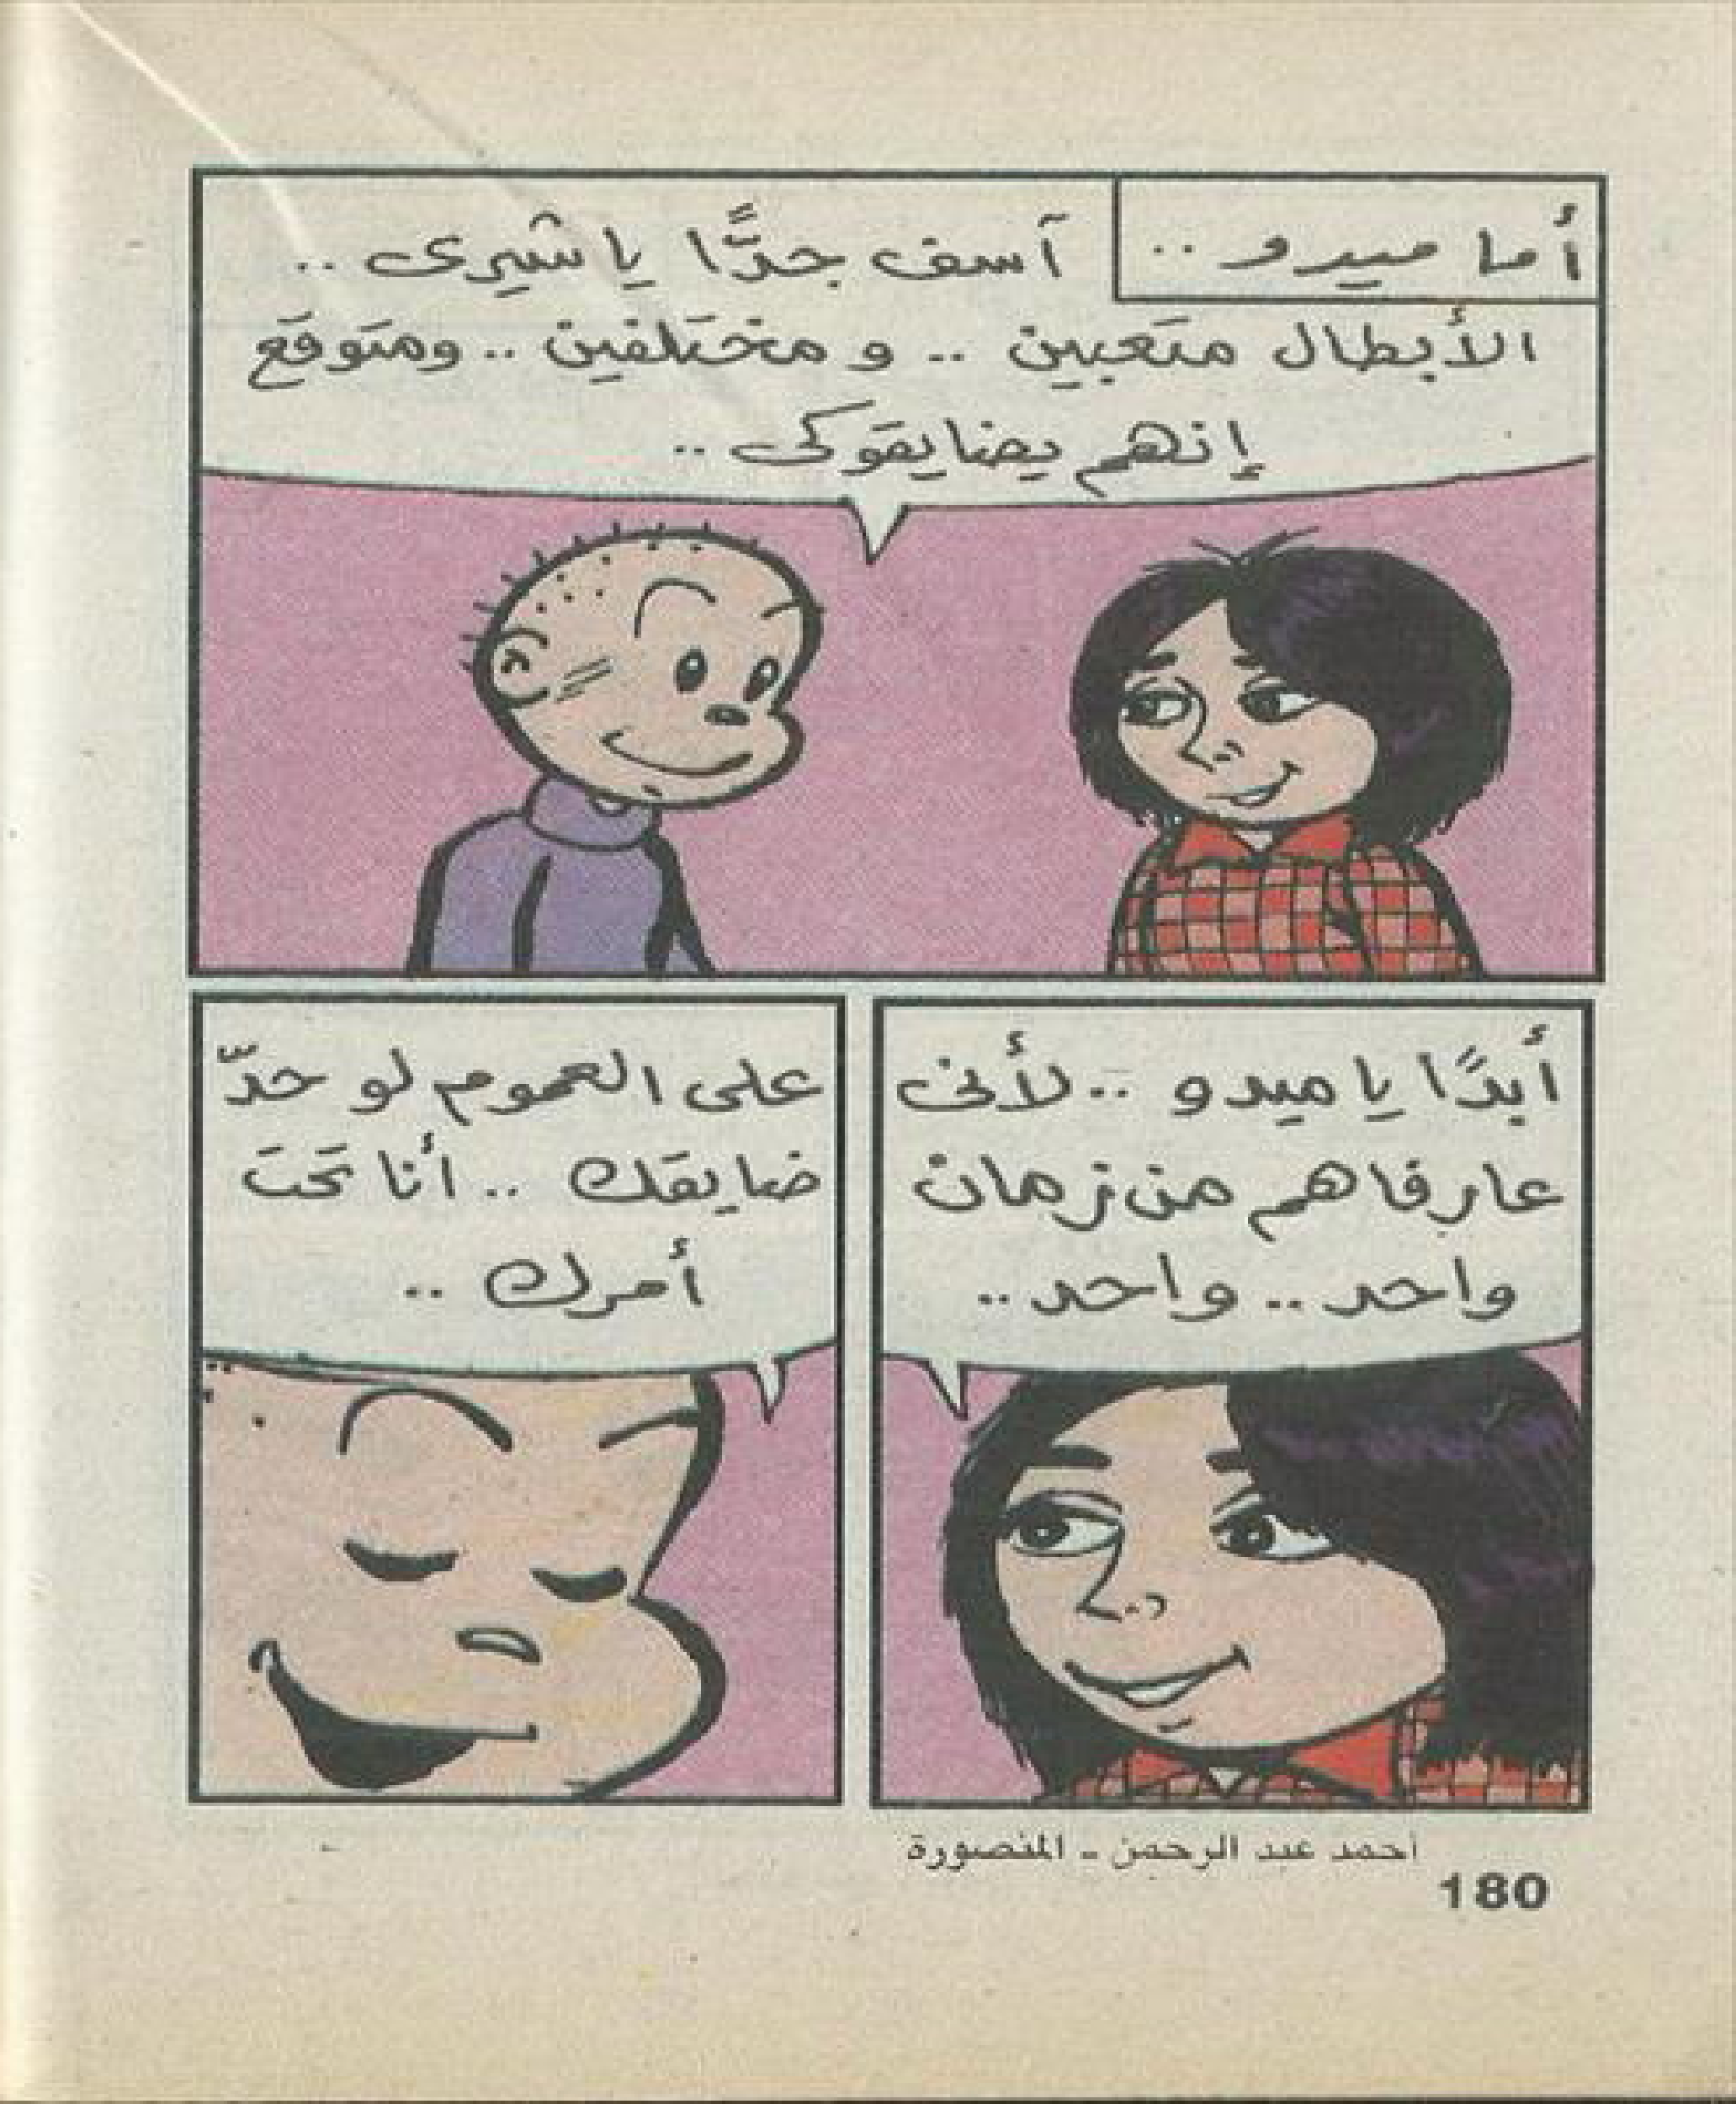 أما ميدو ..
آسف جدًّا يا شيرى ..
الأبطال متعبين .. و مختلفين .. ومتوقع
إنهم يضايقوكى ..
أبدًا يا ميدو .. لأنى
عارفاهم من زمان
واحد .. واحد ..
على العموم لو حدّ
ضايقك .. أنا تحت
أمرك ..
احمد عبد الرحمن - المنصورة
180